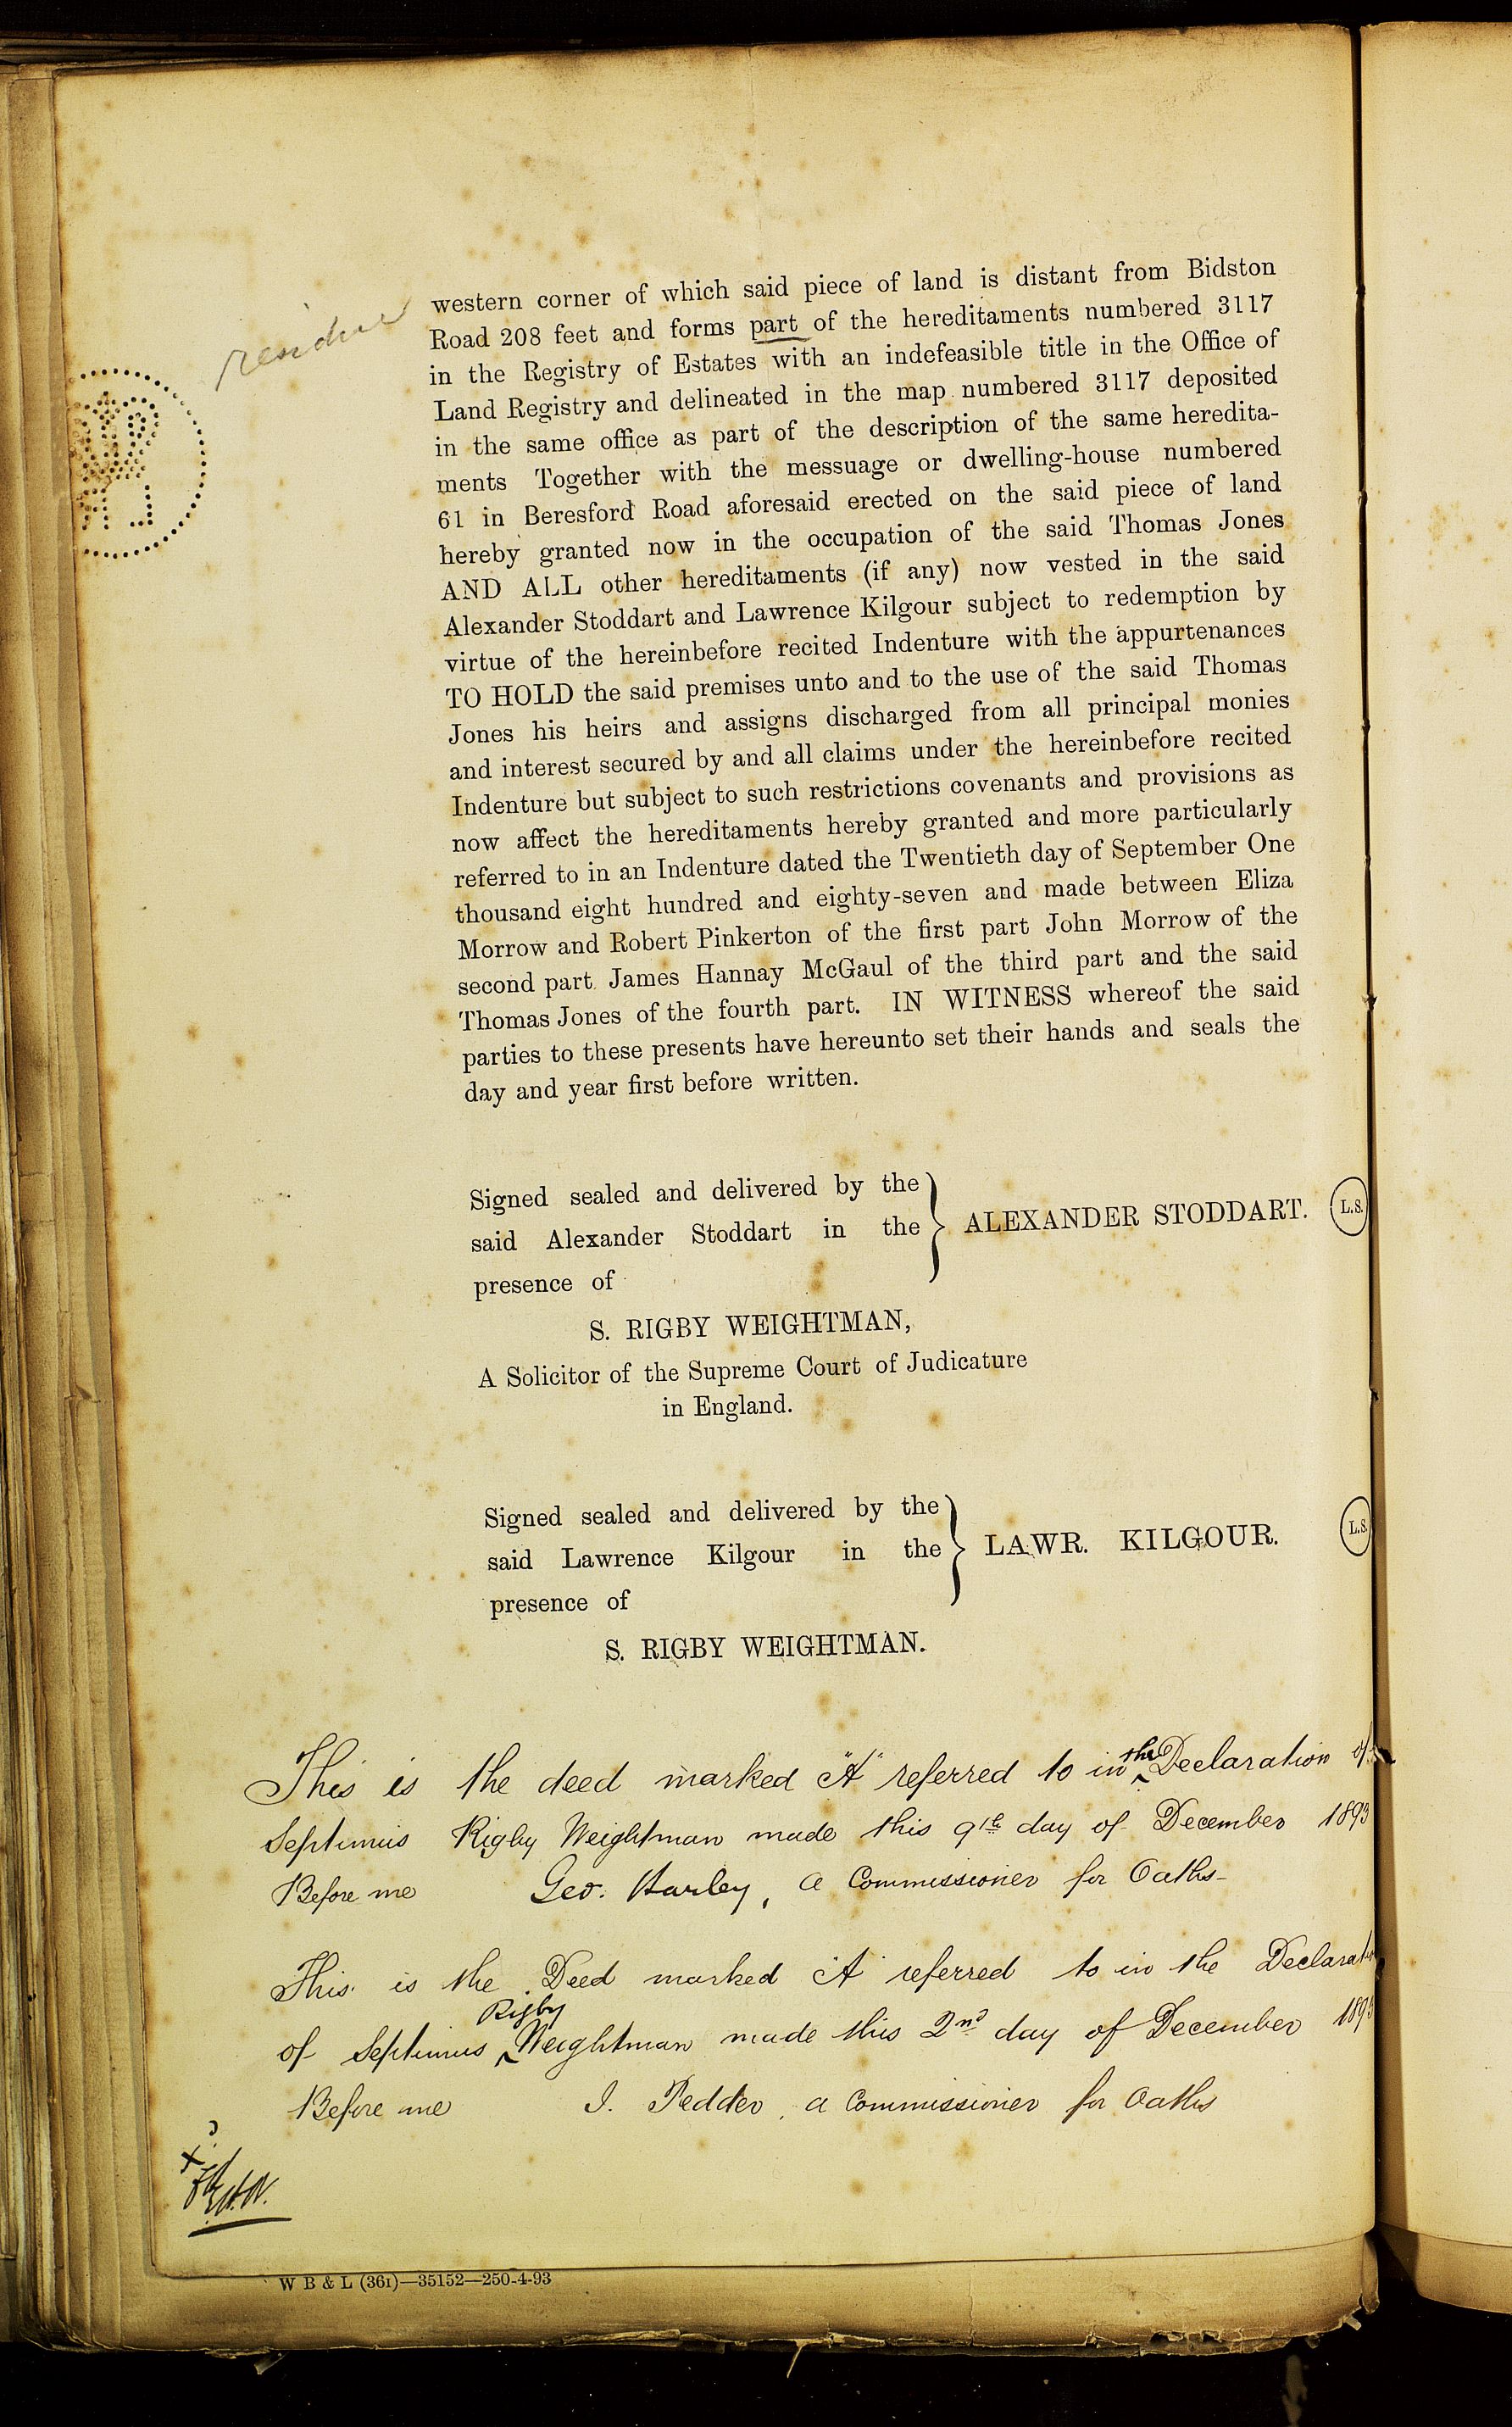 residue
western corner of which said piece of land is distant from Bidston
Road 208 feet and forms part of the hereditaments numbered 3117
in the Registry of Estates with an indefeasible title in the Office of
Land Registry and delineated in the map numbered 3117 deposited
in the same office as part of the description of the same heredita-
ments Together with the messuage or dwelling-house numbered
61 in Beresford Road aforesaid erected on the said piece of land
hereby granted now in the occupation of the said Thomas Jones
AND ALL other hereditaments (if any) now vested in the said
Alexander Stoddart and Lawrence Kilgour subject to redemption by
virtue of the hereinbefore recited Indenture with the appurtenances
TO HOLD the said premises unto and to the use of the said Thomas
Jones his heirs and assigns discharged from all principal monies
and interest secured by and all claims under the hereinbefore recited
Indenture but subject to such restrictions covenants and provisions as
now affect the hereditaments hereby granted and more particularly
referred to in an Indenture dated the Twentieth day of September One
thousand eight hundred and eighty-seven and made between Eliza
Morrow and Robert Pinkerton of the first part John Morrow of the
second part James Hannay McGaul of the third part and the said
Thomas Jones of the fourth part. IN WITNESS whereof the said
parties to these presents have hereunto set their hands and seals the
day and year first before written.
Signed sealed and delivered by the
said Alexander Stoddart in the
presence of
ALEXANDER STODDART. L.S.
S. RIGBY WEIGHTMAN,
A Solicitor of the Supreme Court of Judicature
in England.
Signed sealed and delivered by the
said Lawrence Kilgour in the
presence of
LAWR. KILGOUR. L.S.
S. RIGBY WEIGHTMAN.
This is the deed marked "A" referred to in the Declaration of
Septimus Rigby Weightman made this 9th day of December 1893
Before me Geo. Harley, a Commissioner for Oaths
This is the Deed marked "A" referred to in the Declarat
of Septimus Rigby Weightman made this 2nd day of December 1893
Before me J. Pedder, a Commissioner for Oaths
W B & L (361)—35152—250-4-93